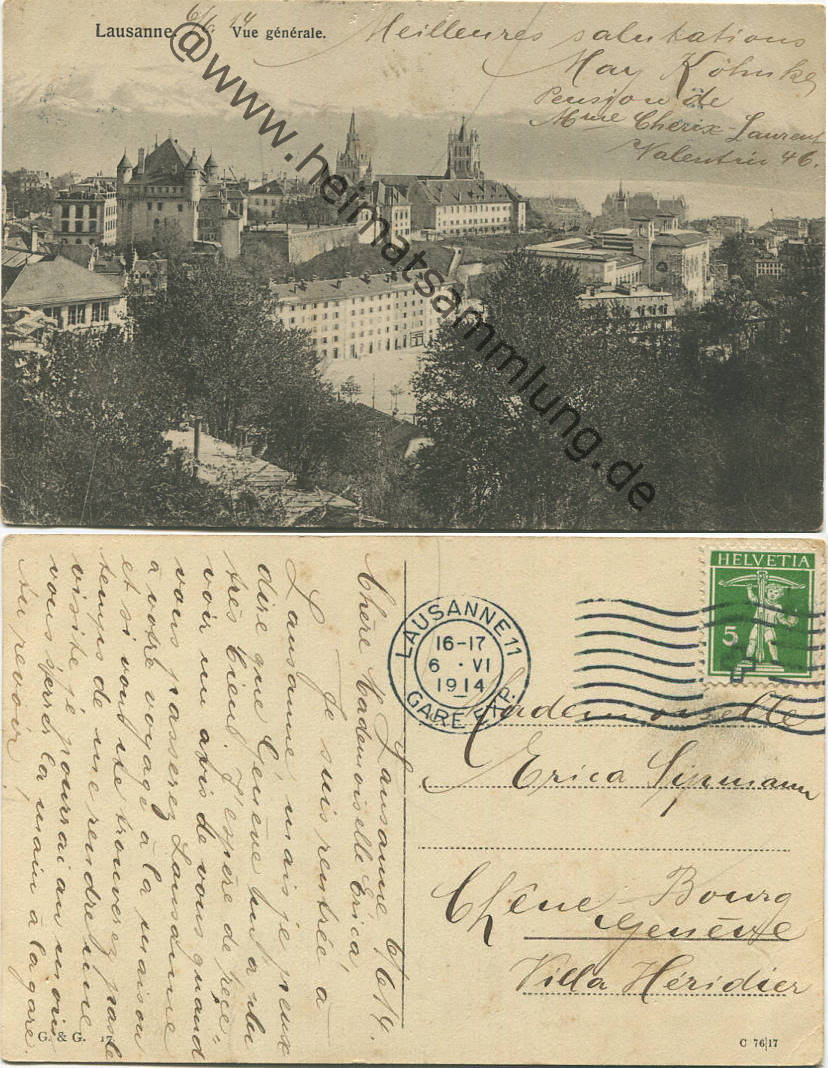 Lausanne. 6/6. 14 Vue générale.
Meilleures salutations
May Köhnke
Pension de
Mme Cherix-Laurent
Valentin 46.
@www.heimatsammlung.de
Lausanne 6/6 14.
Chère Mademoiselle Erica,
Je suis rentrée à
Lausanne, mais je peux
dire que Genève m'a plu
très bien. J'espère de rece-
voir un avis de vous quand
vous passerez Lausanne
à votre voyage à la maison
et si vous ne trouverez pas le
temps de me rendre une
visite je pourrai au moins
vous serrer la main à la gare.
Au revoir!
G. & G. 17
LAUSANNE 11
16-17
6 · VI
1914
GARE EXP.
HELVETIA
5
Mademoiselle
Erica Sipmann
Chêne-Bourg
Genève
Villa Héridier
C 76|17